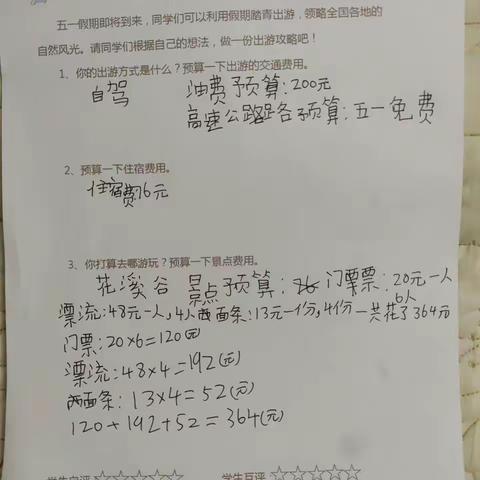 五一假期即将到来，同学们可以利用假期踏青出游，领略全国各地的
自然风光。请同学们根据自己的想法，做一份出游攻略吧！
1、你的出游方式是什么？预算一下出游的交通费用。
自驾 油费预算：200元
高速公路路各预算：五一免费
2、预算一下住宿费用。
住宿费76元
3、你打算去哪游玩？预算一下景点费用。
花溪谷 景点预算： 门票票：20元一人
6人
漂流：48元一人，4人 面条：13元一份，4份 一共花了364元
门票：20×6=120(元)
漂流：48×4=192(元)
面条：13×4=52(元)
120+192+52=364(元)
学生自评☆☆☆☆☆ 学生互评☆☆☆☆☆